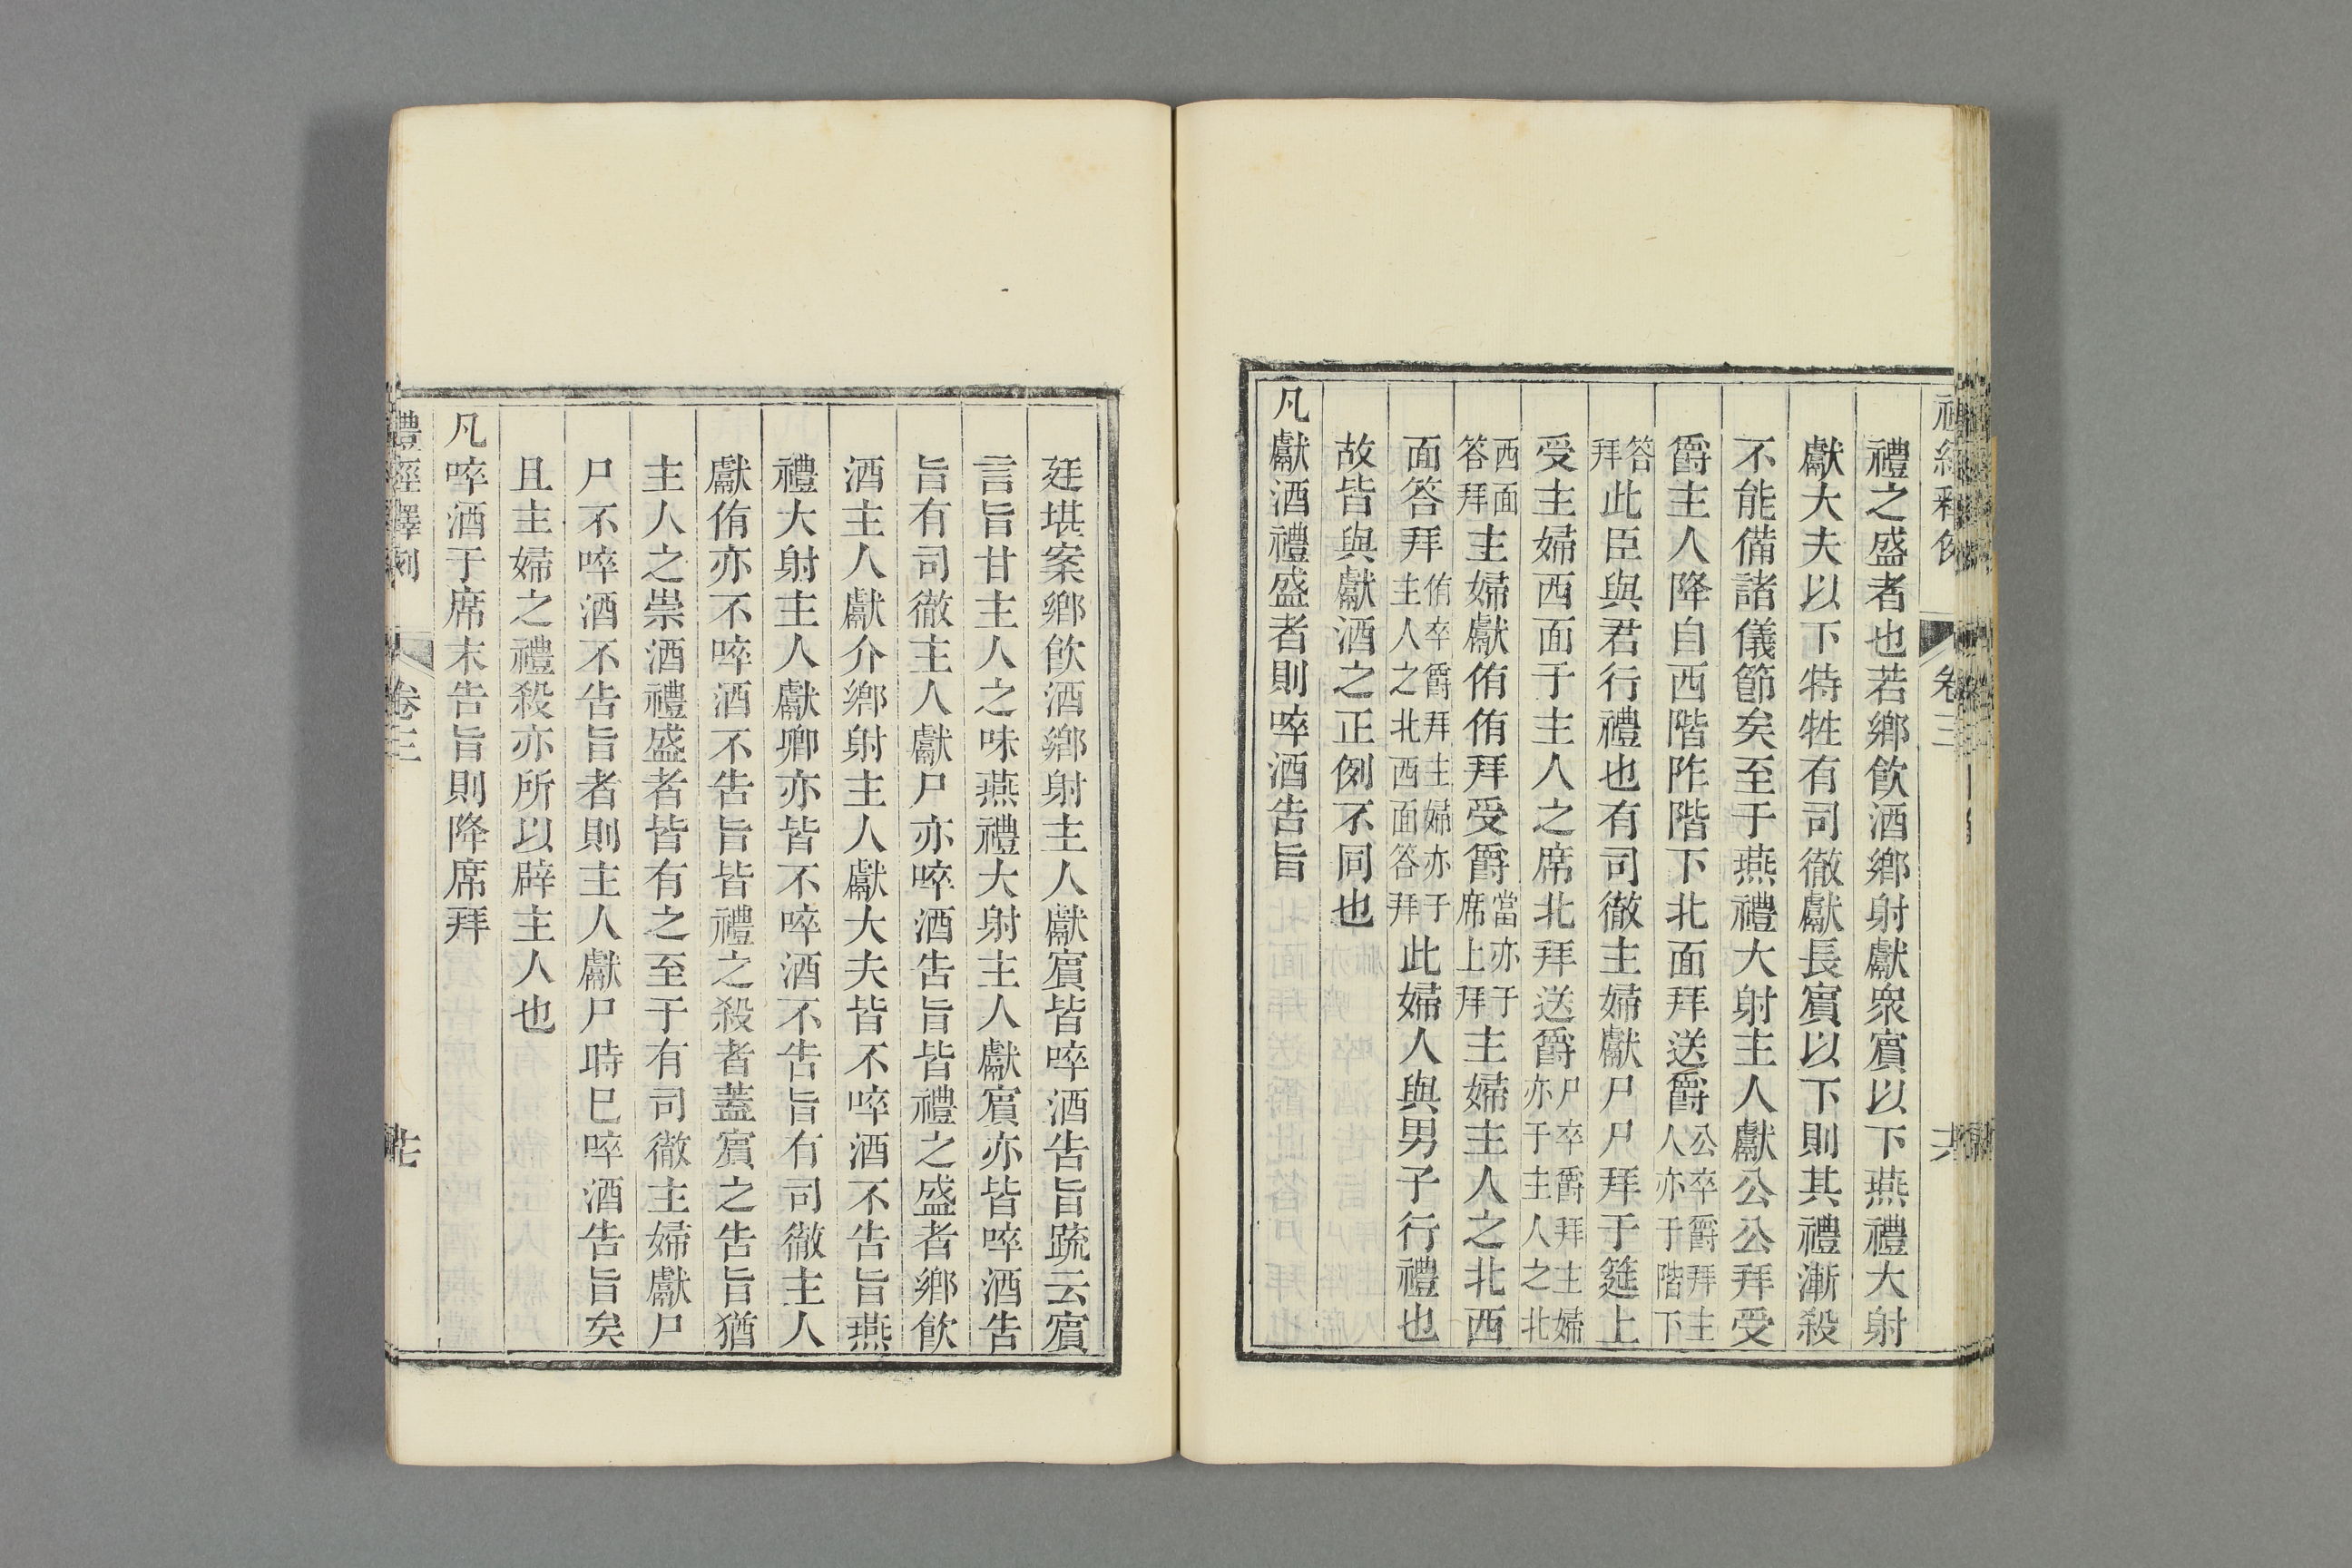 禮之盛者也若鄉飲酒鄉射獻衆賓以下燕禮大射
獻大夫以下特牲有司徹獻長賓以下則其禮漸殺
不能備諸儀節矣至于燕禮大射主人獻公公拜受
爵主人降自西階阼階下北面拜送爵公卒爵拜主人亦于階下
答拜此臣與君行禮也有司徹主婦獻尸尸拜于筵上
受主婦西面于主人之席北拜送爵尸卒爵拜主婦亦于主人之北
西面答拜主婦獻侑侑拜受爵當亦于席上拜主婦主人之北西
面答拜侑卒爵拜主婦亦于主人之北西面答拜此婦人與男子行禮也
故皆與獻酒之正例不同也
凡獻酒禮盛者則啐酒告旨
廷堪案鄉飲酒鄉射主人獻賓皆啐酒告旨疏云賓
言旨甘主人之味燕禮大射主人獻賓亦皆啐酒告
旨有司徹主人獻尸亦啐酒告旨皆禮之盛者鄉飲
酒主人獻介鄉射主人獻大夫皆不啐酒不告旨燕
禮大射主人獻卿亦皆不啐酒不告旨有司徹主人
獻侑亦不啐酒不告旨皆禮之殺者蓋賓之告旨猶
主人之崇酒禮盛者皆有之至于有司徹主婦獻尸
尸不啐酒不告旨者則主人獻尸時已啐酒告旨矣
且主婦之禮殺亦所以辟主人也
凡啐酒于席末告旨則降席拜
禮經釋例
卷三